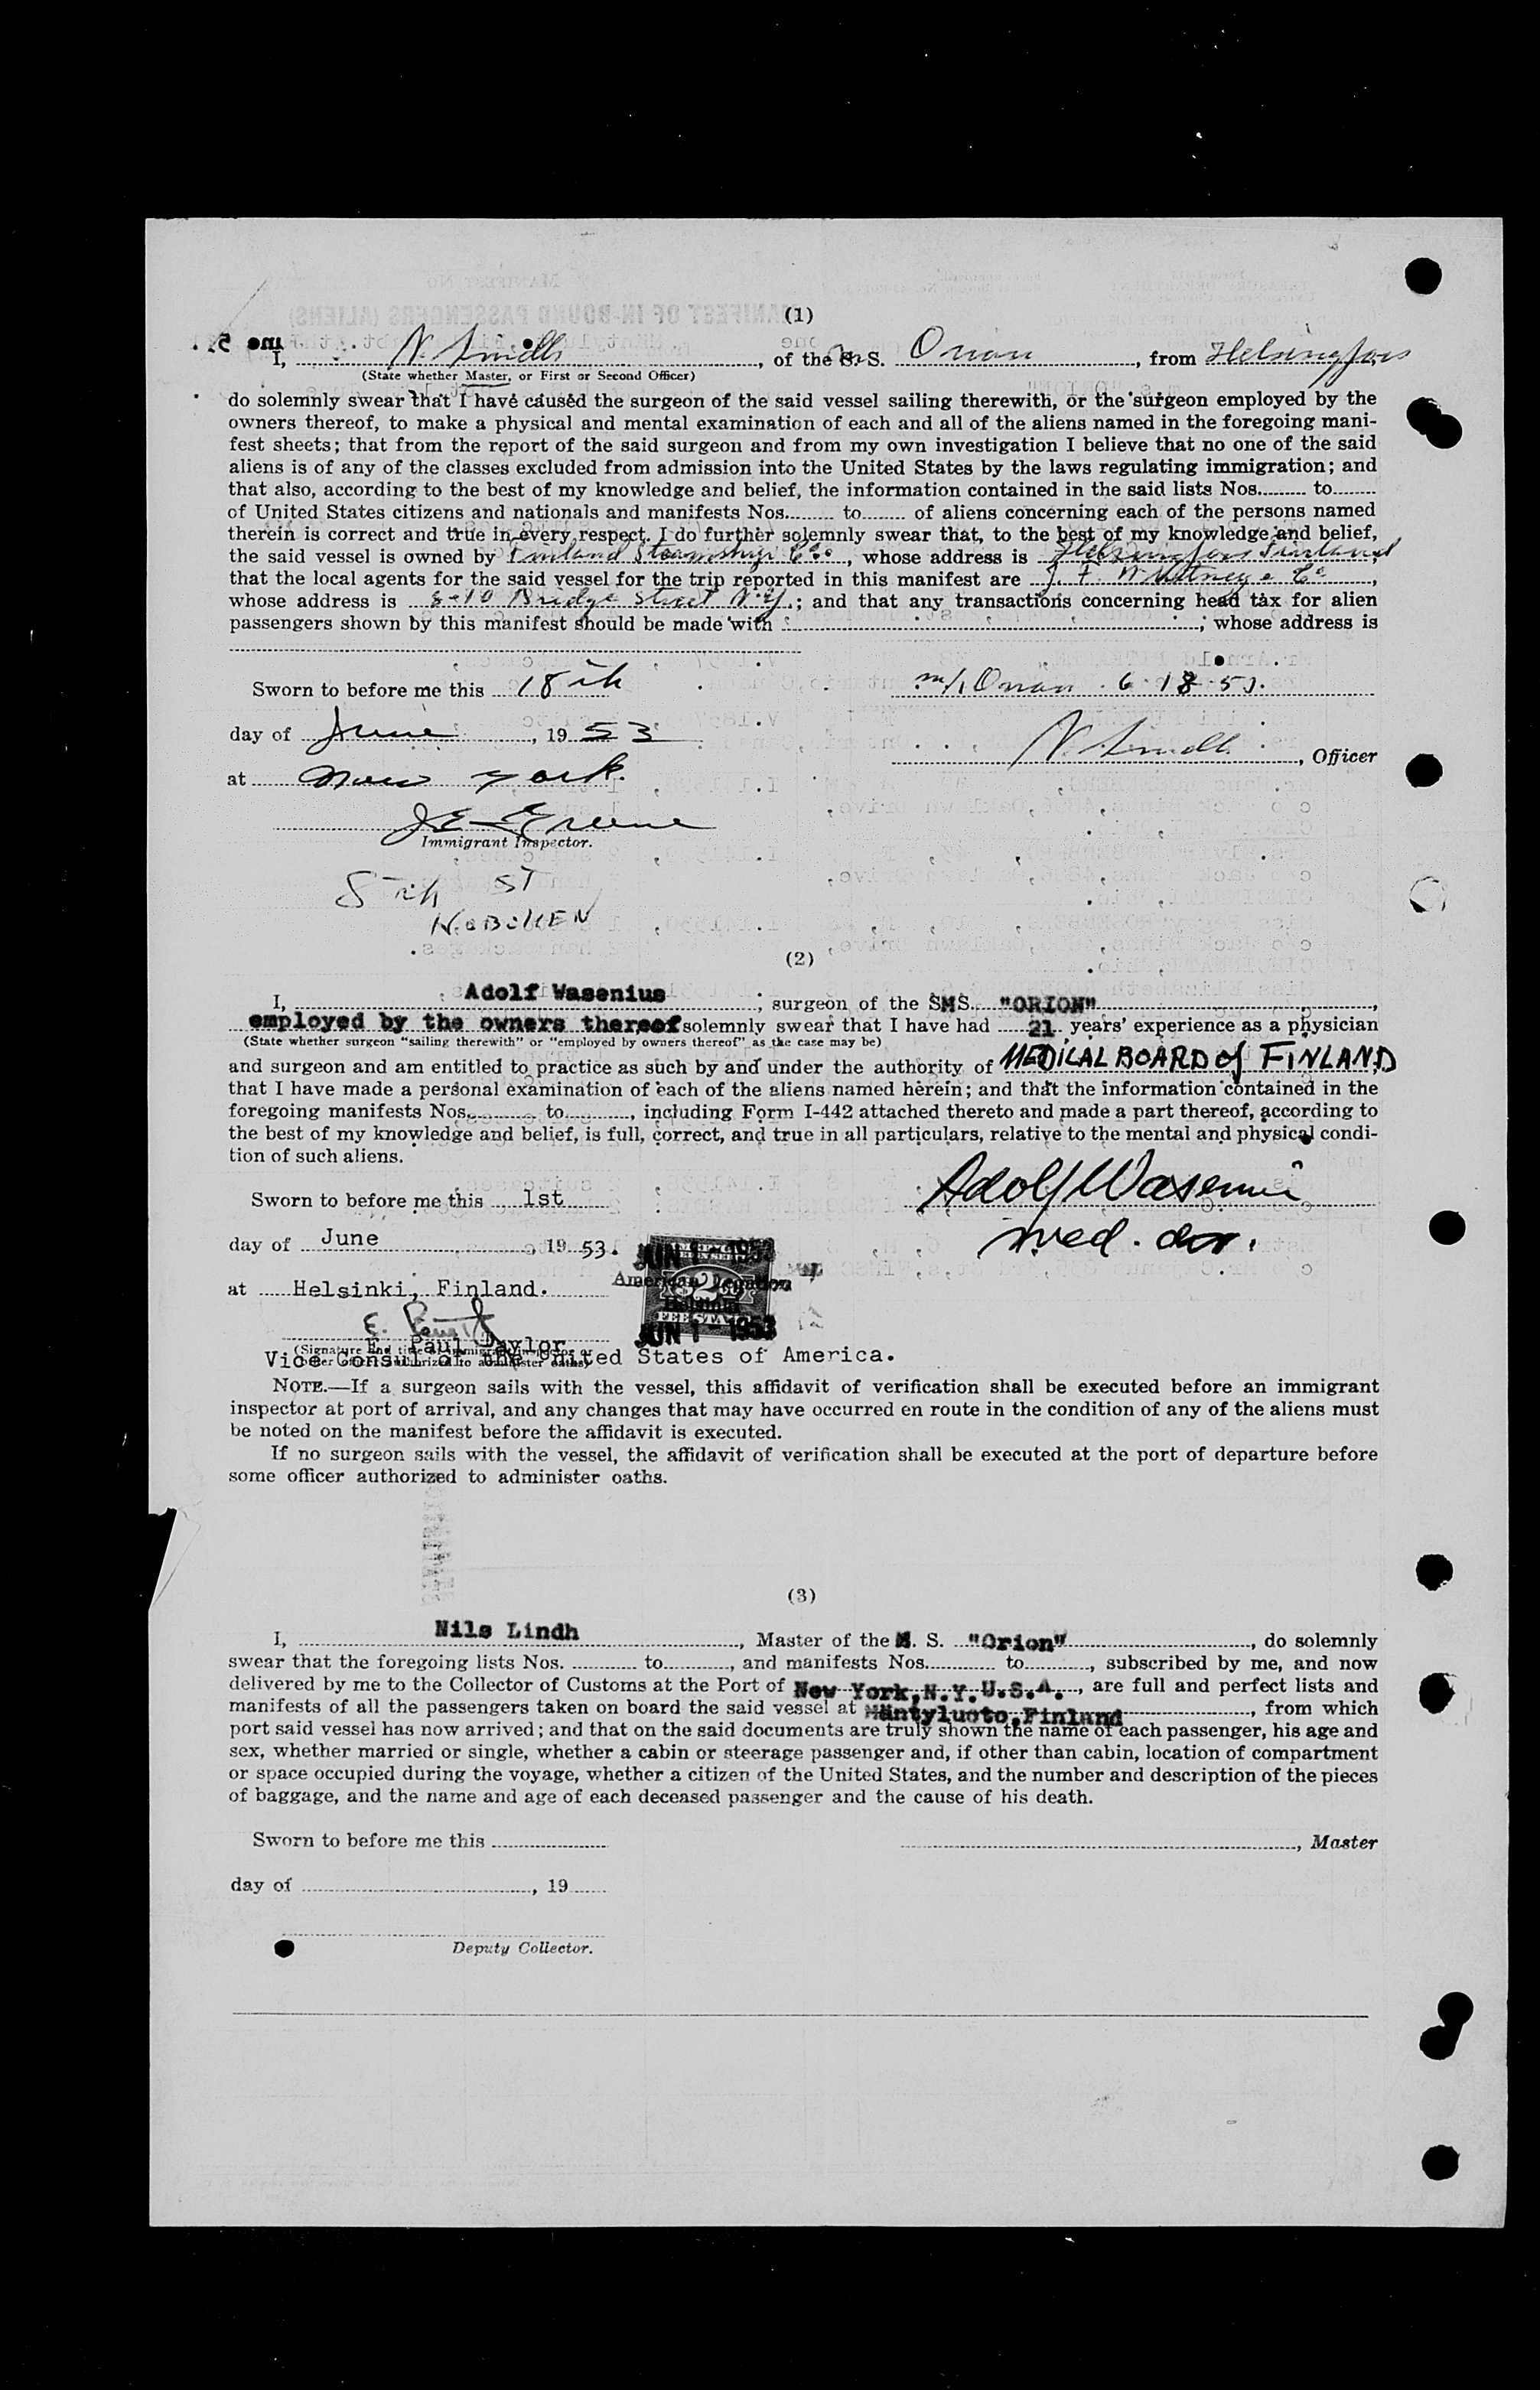 (1)
I, N. Lindh, of the M. S. Orion, from Helsingfors
(State whether Master, or First or Second Officer)
do solemnly swear that I have caused the surgeon of the said vessel sailing therewith, or the surgeon employed by the
owners thereof, to make a physical and mental examination of each and all of the aliens named in the foregoing mani-
fest sheets; that from the report of the said surgeon and from my own investigation I believe that no one of the said
aliens is of any of the classes excluded from admission into the United States by the laws regulating immigration; and
that also, according to the best of my knowledge and belief, the information contained in the said lists Nos. to
of United States citizens and nationals and manifests Nos. to of aliens concerning each of the persons named
therein is correct and true in every respect. I do further solemnly swear that, to the best of my knowledge and belief,
the said vessel is owned by Finland Steamship Co., whose address is Helsingfors Finland,
that the local agents for the said vessel for the trip reported in this manifest are J. F. Whitney & Co,
whose address is 8-10 Bridge Street N.Y.; and that any transactions concerning head tax for alien
passengers shown by this manifest should be made with ; whose address is
Sworn to before me this 18th
m/s Orion 6.18.53.
day of June, 19 53
N. Lindh, Officer
at New York.
Immigrant Inspector.
5th ST
HOBOKEN
(2)
I, Adolf Wasenius, surgeon of the SMS. "ORION",
employed by the owners thereof solemnly swear that I have had 21 years' experience as a physician
(State whether surgeon "sailing therewith" or "employed by owners thereof" as the case may be)
and surgeon and am entitled to practice as such by and under the authority of MEDICAL BOARD of FINLAND
that I have made a personal examination of each of the aliens named herein; and that the information contained in the
foregoing manifests Nos. to , including Form I-442 attached thereto and made a part thereof, according to
the best of my knowledge and belief, is full, correct, and true in all particulars, relative to the mental and physical condi-
tion of such aliens.
Adolf Wasenius
Sworn to before me this 1st
med. dr.
day of June, 19 53.
JUN 1 - 1953
American Legation
$2
Helsinki
FEE STAMP
JUN 1 - 1953
at Helsinki, Finland.
E. Paul Taylor
Vice Consul of the United States of America.
NOTE.—If a surgeon sails with the vessel, this affidavit of verification shall be executed before an immigrant
inspector at port of arrival, and any changes that may have occurred en route in the condition of any of the aliens must
be noted on the manifest before the affidavit is executed.
If no surgeon sails with the vessel, the affidavit of verification shall be executed at the port of departure before
some officer authorized to administer oaths.
(3)
I, Nils Lindh, Master of the M. S. "Orion", do solemnly
swear that the foregoing lists Nos. to , and manifests Nos. to , subscribed by me, and now
delivered by me to the Collector of Customs at the Port of New York, N.Y. U.S.A., are full and perfect lists and
manifests of all the passengers taken on board the said vessel at Mäntyluoto, Finland, from which
port said vessel has now arrived; and that on the said documents are truly shown the name of each passenger, his age and
sex, whether married or single, whether a cabin or steerage passenger and, if other than cabin, location of compartment
or space occupied during the voyage, whether a citizen of the United States, and the number and description of the pieces
of baggage, and the name and age of each deceased passenger and the cause of his death.
Sworn to before me this
, Master
day of , 19
Deputy Collector.